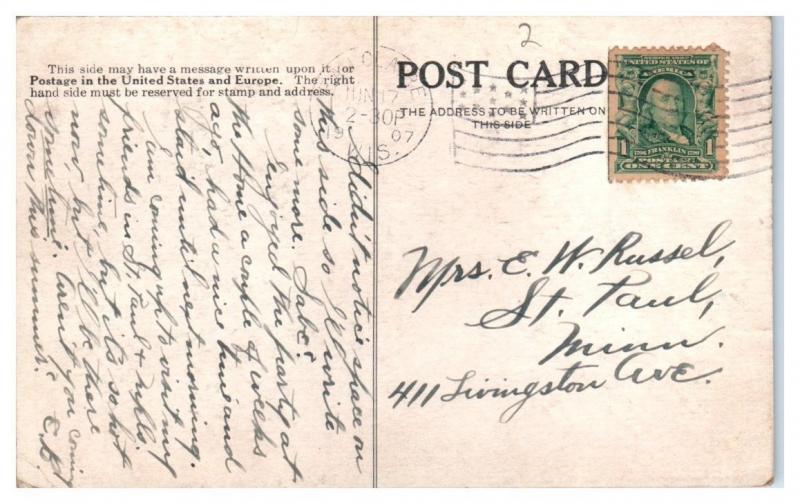 2
This side may have a message written upon it for
Postage in the United States and Europe. The right
hand side must be reserved for stamp and address.
POST CARD
THE ADDRESS TO BE WRITTEN ON
THIS SIDE
JUN 17
2-30P
1907
WIS.
UNITED STATES OF
AMERICA
1 FRANKLIN 1
POSTAGE
ONE CENT
Mrs. E. W. Russel,
St. Paul,
Minn.
411 Livingston Ave.
I didn't notice space on
this side so I'll write
some more.
I enjoyed the party at
the Home a couple of weeks
ago, had a nice time and
staid until next morning.
I am coming up to visit my
friends in St. Paul & Mpls.
sometime, but it's so hot
now but I'll be there
some time. Aren't you coming
down this summer?